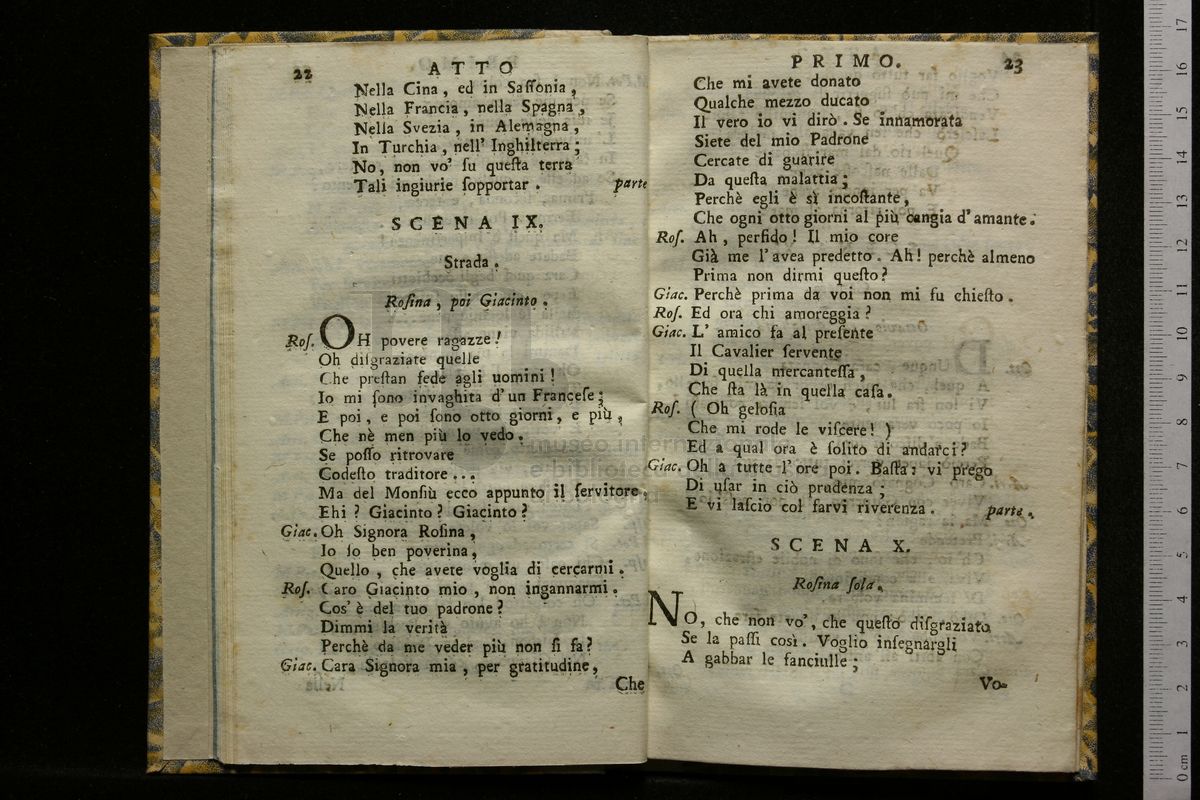 22
ATTO
Nella Cina, ed in Saſſonia,
Nella Francia, nella Spagna,
Nella Svezia, in Alemagna,
In Turchia, nell' Inghilterra;
No, non vo' ſu queſta terra
Tali ingiurie ſopportar. parte
SCENA IX.
Strada.
Roſina, poi Giacinto.
Roſ. OH povere ragazze!
Oh diſgraziate quelle
Che preſtan fede agli uomini!
Io mi ſono invaghita d'un Franceſe;
E poi, e poi ſono otto giorni, e più,
Che nè men più lo vedo.
Se poſſo ritrovare
Codeſto traditore...
Ma del Monſiù ecco appunto il ſervitore,
Ehi? Giacinto? Giacinto?
Giac. Oh Signora Roſina,
Io ſo ben poverina,
Quello, che avete voglia di cercarmi.
Roſ. Caro Giacinto mio, non ingannarmi.
Cos' è del tuo padrone?
Dimmi la verità
Perchè da me veder più non ſi fa?
Giac. Cara Signora mia, per gratitudine,
Che
PRIMO.
23
Che mi avete donato
Qualche mezzo ducato
Il vero io vi dirò. Se innamorata
Siete del mio Padrone
Cercate di guarire
Da queſta malattia;
Perchè egli è sì incoſtante,
Che ogni otto giorni al più cangia d'amante.
Roſ. Ah, perfido! Il mio core
Già me l'avea predetto. Ah! perchè almeno
Prima non dirmi queſto?
Giac. Perchè prima da voi non mi fu chieſto.
Roſ. Ed ora chi amoreggia?
Giac. L' amico fa al preſente
Il Cavalier ſervente
Di quella mercanteſſa,
Che ſta là in quella caſa.
Roſ. (Oh geloſia
Che mi rode le viſcere!)
Ed a qual ora è ſolito di andarci?
Giac. Oh a tutte l'ore poi. Baſta: vi prego
Di uſar in ciò prudenza;
E vi laſcio col farvi riverenza. parte.
SCENA X.
Roſina ſola.
NO, che non vo', che queſto diſgraziato
Se la paſſi così. Voglio inſegnargli
A gabbar le fanciulle;
Vo-